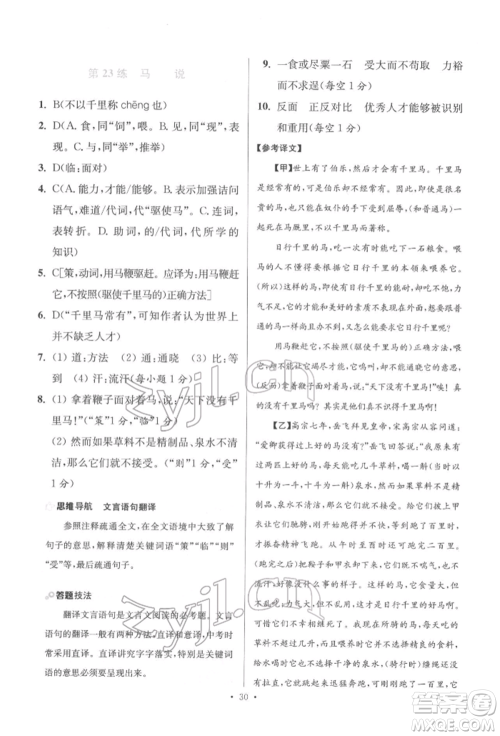 第23练 马 说
1. B(不以千里称chēng也)
2. D(A.食,同“饲”,喂。B.见,同“现”,表
现。C.与,同“举”,推举)
3. D(临:面对)
4. C(A.能力,才能/能够。B.加强反问
语气,难道/代词,代“驱使马”。C.代
词。D.助词,的/代词,代所学的
知识)
5. C[策,动词,用马鞭驱赶。应译为:用马鞭赶
它,不按照(驱使千里马的)正确方法]
6. D(“千里马常有”,作者认为世界上
并不缺乏人才)
7. (1) 道;方法 (2) 通;通晓 (3) 比;等
到 (4) 汗;流汗(每小题1分)
8. (1) 拿着鞭子面对马,说:“天下没有千
里马!”(“策”1分,“临”1分)
(2) 然而如果草料不是精制品、泉水不清
洁,那么它们就不吃不饮。(“则”1分,“受”
1分)
思维导航 文言语句翻译
参照注释疏通全文,在全文语境中理解
句子的意思,解释清楚关键词语“策”“临”“则”
“受”等,最后疏通句子。
答题技法
翻译文言语句是文言文阅读的必考题。文言
语句的翻译一般有两种方法:直译和意译,中考时
常采用直译。直译讲究字字落实,特别是关键词
语的意思必须要呈现出来。
9. 一食或尽粟一石 受大而不苟取 力裕
而不求逞(每空1分)
10. 反面 正反对比 优秀人才能够被识别
和重用(每空1分)
【参考译文】
【甲】世上有了伯乐,然后才会有千里马。千里
马经常有,可是伯乐却不常有。因此,即使有名
贵的马,也只是在奴仆的手下受屈辱,(和普通马)一
同死在马厩里,不以千里马而著称。
日行千里的马,吃一顿有时能吃完一石粮食。喂
马的人不懂得要根据它日行千里的本领来喂养它。
(所以)这样的马,虽有日行千里的才能,却吃不饱,力
气不足,它的才能和美好的素质也就不能表现出来,
想要和普通的马一样尚且做不到,怎么能够要求它
日行千里呢?
用马鞭赶它,不按照(驱使千里马的)正确方法;
喂养它,又不能使它充分发挥自己的才能;听它嘶叫,
却不能通晓它的意思。拿着鞭子面对它,说:“天下没
有千里马!”唉,难道果真没有千里马吗?恐怕是他们
真不识得千里马啊!
【乙】高宗七年,岳飞拜见皇帝,宋高宗从容问道:
“爱卿不获得过上好的马没有?”岳飞回答说:“我原来
有两匹上好的马,所以常常认为它们奇异。它们每天
要吃几斗草料,喝一斛(一斛为十斗,一斗为十升,一
升为十合,一斛是很多的)泉水,然而如果草料不是精
制品、泉水不清洁,那么它们就不吃不饮。给它们披
上战甲戴上头盔而奔驰,刚开始时好像不是很快。等
到跑了一百多里后,才开始挥动鬃毛长声鸣叫,振动
四蹄迅速奔跑。从午时到酉时,还可以跑完二百里。
脱下它们的鞍子和甲衣而不喘息、不流汗,就像没有
事一样。这样的马,吃得多却不随便食用饲料,力气充
沛却不追求逞能炫耀,是到达远路的良才啊。(它们)
不幸相继死去。我现在所乘的马,每天吃的草料不超
过几升,而且吃草料不选择精良的食料,喝水不选择
清洁的泉水。拉着缰绳还没有坐稳,就跳跃着迅速奔
跑,刚刚跑完百里,就力气用完,汗水流尽,气喘吁吁,
就像要死了一样。这样的马,需要的不多容易满足,
喜欢逞能但是容易耗尽力气,是低劣愚钝的马啊。”
• 30 •
zyjl.cn
zyjl.cn
答案圈
MXQE.COM